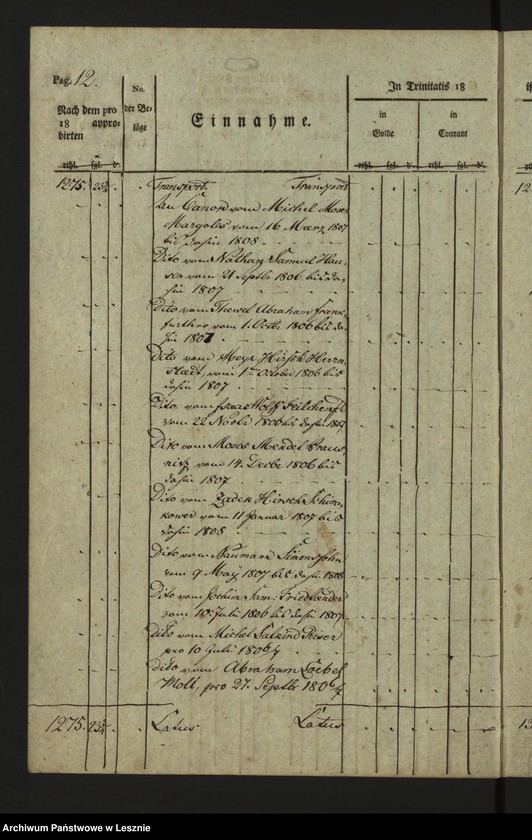 Pag. 12.
Nach dem pro
18 appro-
birten
rthl. sgl. d.
No.
der Be-
läge
Einnahme.
In Trinitatis 18
in
Golde
in
Courant
rthl. sgl. d. rthl. sgl. d.
1275. 23¾ Transport. Transport
An Canon vom Michel Moses
Margoles vom 16 Maerz 1807
bis dahin 1808
Dito vom Nathan Samuel
vom 21 Septbr 1806 bis da-
hin 1807
Dito vom Abraham Frank-
further vom 1. Octbr 1806 bis da-
hin 1807
Dito vom Meyer Hirsch Herrn-
stadt, vom 1ten October 1806 bis
dahin 1807
Dito vom Isaac Wolff
vom 22 Novbr 1806 bis dahin 1807
Dito vom Moses Mendel
vom 14. Decbr 1806 bis
dahin 1807
Dito vom Zadek Hirsch
vom 11 Januar 1807 bis
dahin 1808
Dito vom Naumann Simonssohn
vom 9 May 1807 bis dahin 1808
Dito vom Jochim Sam: Friedlaender
vom 10. Juli 1806 bis dahin 1807
Dito vom Michel Salkind Peiser
pro 10 Juli 1806/7
dito vom Abraham Loebel
Moll, pro 27. Septbr 1806/7
1275. 23¾ Latus Latus
Archiwum Państwowe w Lesznie